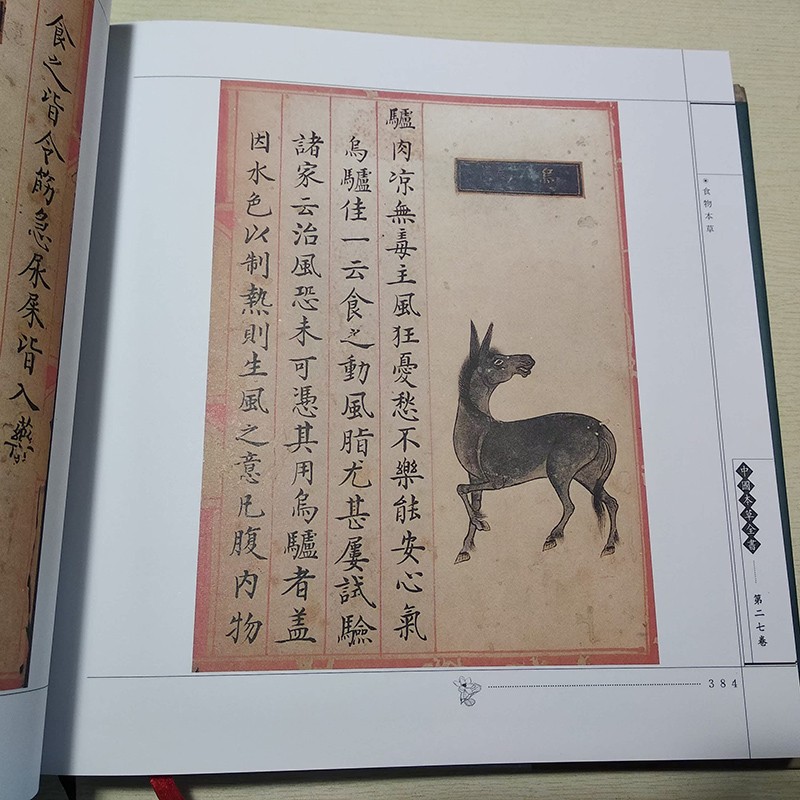 食物本草
中國本草全書
第二七卷
驢肉凉無毒主風狂憂愁不樂能安心氣
烏驢佳一云食之動風脂尤甚屢試驗
諸家云治風恐未可憑其用烏驢者盖
因水色以制熱則生風之意凡腹内物
384
食之皆令筋急尿屎皆入藥